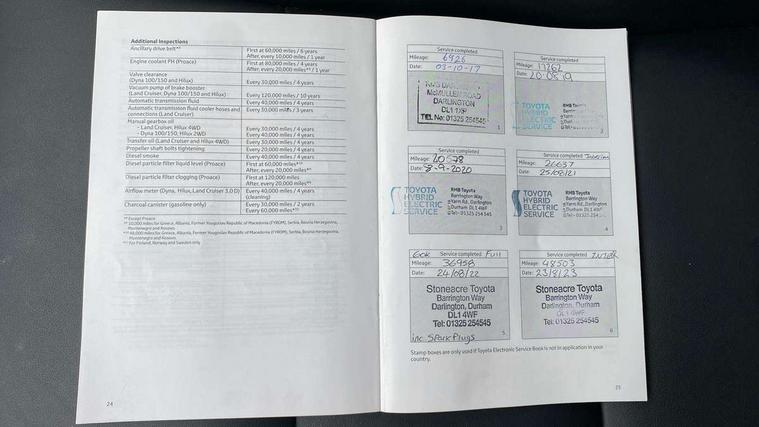 Additional Inspections
Ancillary drive belt*¹
First at 60,000 miles / 6 years
After, every 10,000 miles / 1 year
Engine coolant PH (Proace)
First at 80,000 miles / 4 years
After, every 20,000 miles / 1 year
Valve clearance
(Dyna 100/150 and Hilux)
Every 30,000 miles / 4 years
Vacuum pump of brake booster
(Land Cruiser, Dyna 100/150 and Hilux)
Every 120,000 miles / 10 years
Automatic transmission fluid
Every 40,000 miles / 4 years
Automatic transmission fluid cooler hoses and
connections (Land Cruiser)
Every 30,000 miles / 3 years
Manual gearbox oil
- Land Cruiser, Hilux 4WD
Every 30,000 miles / 4 years
- Dyna 100/150, Hilux 2WD
Every 40,000 miles / 4 years
Transfer oil (Land Cruiser and Hilux 4WD)
Every 30,000 miles / 4 years
Propeller shaft bolts tightening
Every 20,000 miles / 2 years
Diesel smoke
Every 40,000 miles / 4 years
Diesel particle filter liquid level (Proace)
First at 60,000 miles
After, every 20,000 miles
Diesel particle filter clogging (Proace)
First at 120,000 miles
After, every 20,000 miles
Airflow meter (Dyna, Hilux, Land Cruiser 3.0 D)
Every 40,000 miles / 4 years
(cleaning)
Charcoal canister (gasoline only)
Every 30,000 miles / 2 years
Every 60,000 miles
Except Proace
10,000 miles for Greece, Albania, Former Yougoslav Republic of Macedonia (FYROM), Serbia, Bosnia Herzegovina,
Montenegro and Kosovo
40,000 miles for Greece, Albania, Former Yougoslav Republic of Macedonia (FYROM), Serbia, Bosnia Herzegovina,
Montenegro and Kosovo
For Finland, Norway and Sweden only
24
Service completed
Mileage: 6926
Date: 03-10-17
McMULLEN ROAD
DARLINGTON
DL1 1XP
TEL No: 01325 254545
1
Service completed
Mileage:
Date: 20.08.19
TOYOTA
HYBRID
ELECTRIC
SERVICE
RMB Toyota
2
Service completed
Mileage: 20578
Date: 8-9-2020
TOYOTA
HYBRID
ELECTRIC
SERVICE
RMB Toyota
Barrington Way
Yarm Rd, Darlington
Durham DL1 4WF
Tel: 01325 254 545
3
Service completed Interim
Mileage: 26637
Date: 25/08/21
TOYOTA
HYBRID
ELECTRIC
SERVICE
RMB Toyota
Barrington Way
Yarm Rd, Darlington
Durham DL1 4WF
Tel: 01325 254
4
60k Service completed Full
Mileage: 36958
Date: 24/08/22
Stoneacre Toyota
Barrington Way
Darlington, Durham
DL1 4WF
Tel: 01325 254545
5
inc Spark Plugs
Service completed INTER
Mileage: 48503
Date: 23/8/23
Stoneacre Toyota
Barrington Way
Darlington, Durham
DL1 4WF
Tel: 01325 254545
6
Stamp boxes are only used if Toyota Electronic Service Book is not in application in your
country.
25